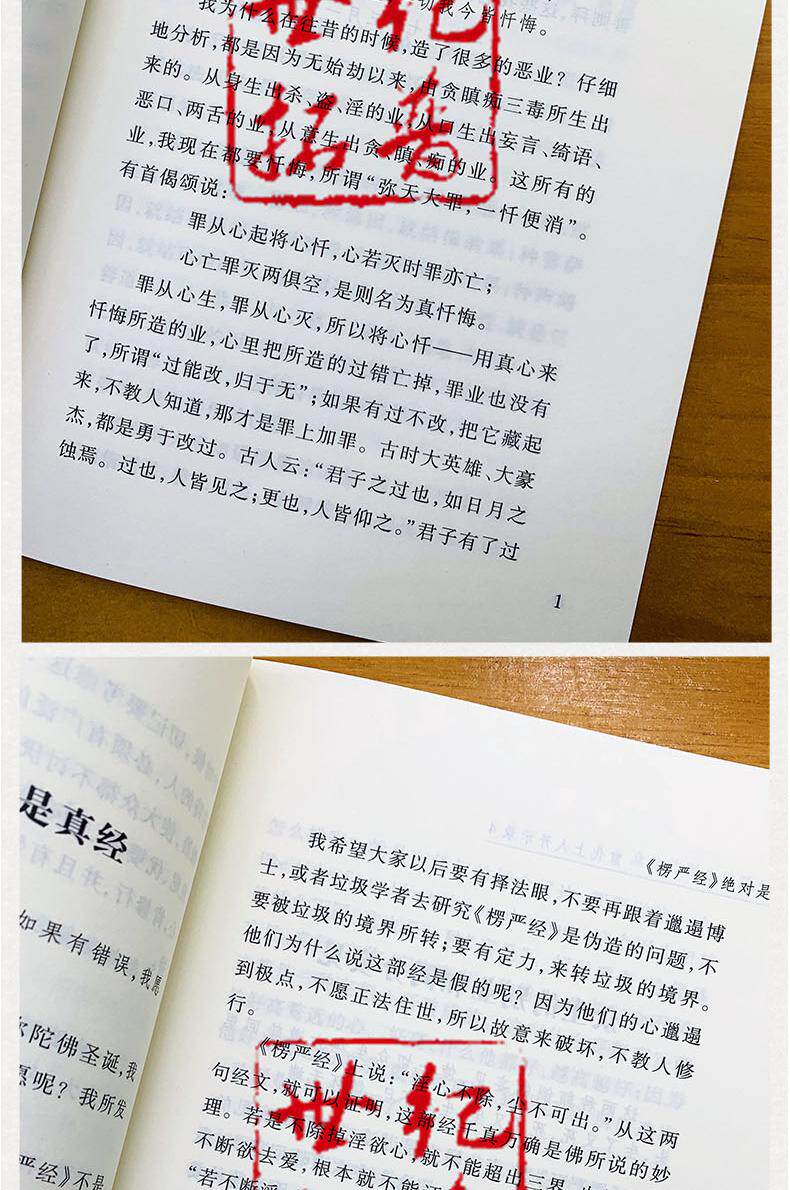 切我今皆忏悔。
我为什么在往昔的时候，造了很多的恶业？仔细
地分析，都是因为无始劫以来，由贪瞋痴三毒所生出
来的。从身生出杀、盗、淫的业，从口生出妄言、绮语、
恶口、两舌的业，从意生出贪、瞋、痴的业。这所有的
业，我现在都要忏悔，所谓“弥天大罪，一忏便消”。
有首偈颂说：
罪从心起将心忏，心若灭时罪亦亡；
心亡罪灭两俱空，是则名为真忏悔。
罪从心生，罪从心灭，所以将心忏——用真心来
忏悔所造的业，心里把所造的过错亡掉，罪业也没有
了，所谓“过能改，归于无”；如果有过不改，把它藏起
来，不教人知道，那才是罪上加罪。古时大英雄、大豪
杰，都是勇于改过。古人云：“君子之过也，如日月之
蚀焉。过也，人皆见之；更也，人皆仰之。”君子有了过
1
世纪
招
是真经
如果有错误，我愿
弥陀佛圣诞，我
愿呢？我所发
严经》不是
《楞严经》绝对是
我希望大家以后要有择法眼，不要再跟着邋遢博
士，或者垃圾学者去研究《楞严经》是伪造的问题，不
要被垃圾的境界所转；要有定力，来转垃圾的境界。
他们为什么说这部经是假的呢？因为他们的心邋遢
到极点，不愿正法住世，所以故意来破坏，不教人修
行。
《楞严经》上说：“淫心不除，尘不可出。”从这两
句经文，就可以证明，这部经千真万确是佛所说的妙
理。若是不除掉淫欲心，就不能超出三界。
不断欲去爱，根本就不能
“若不断淫
世纪